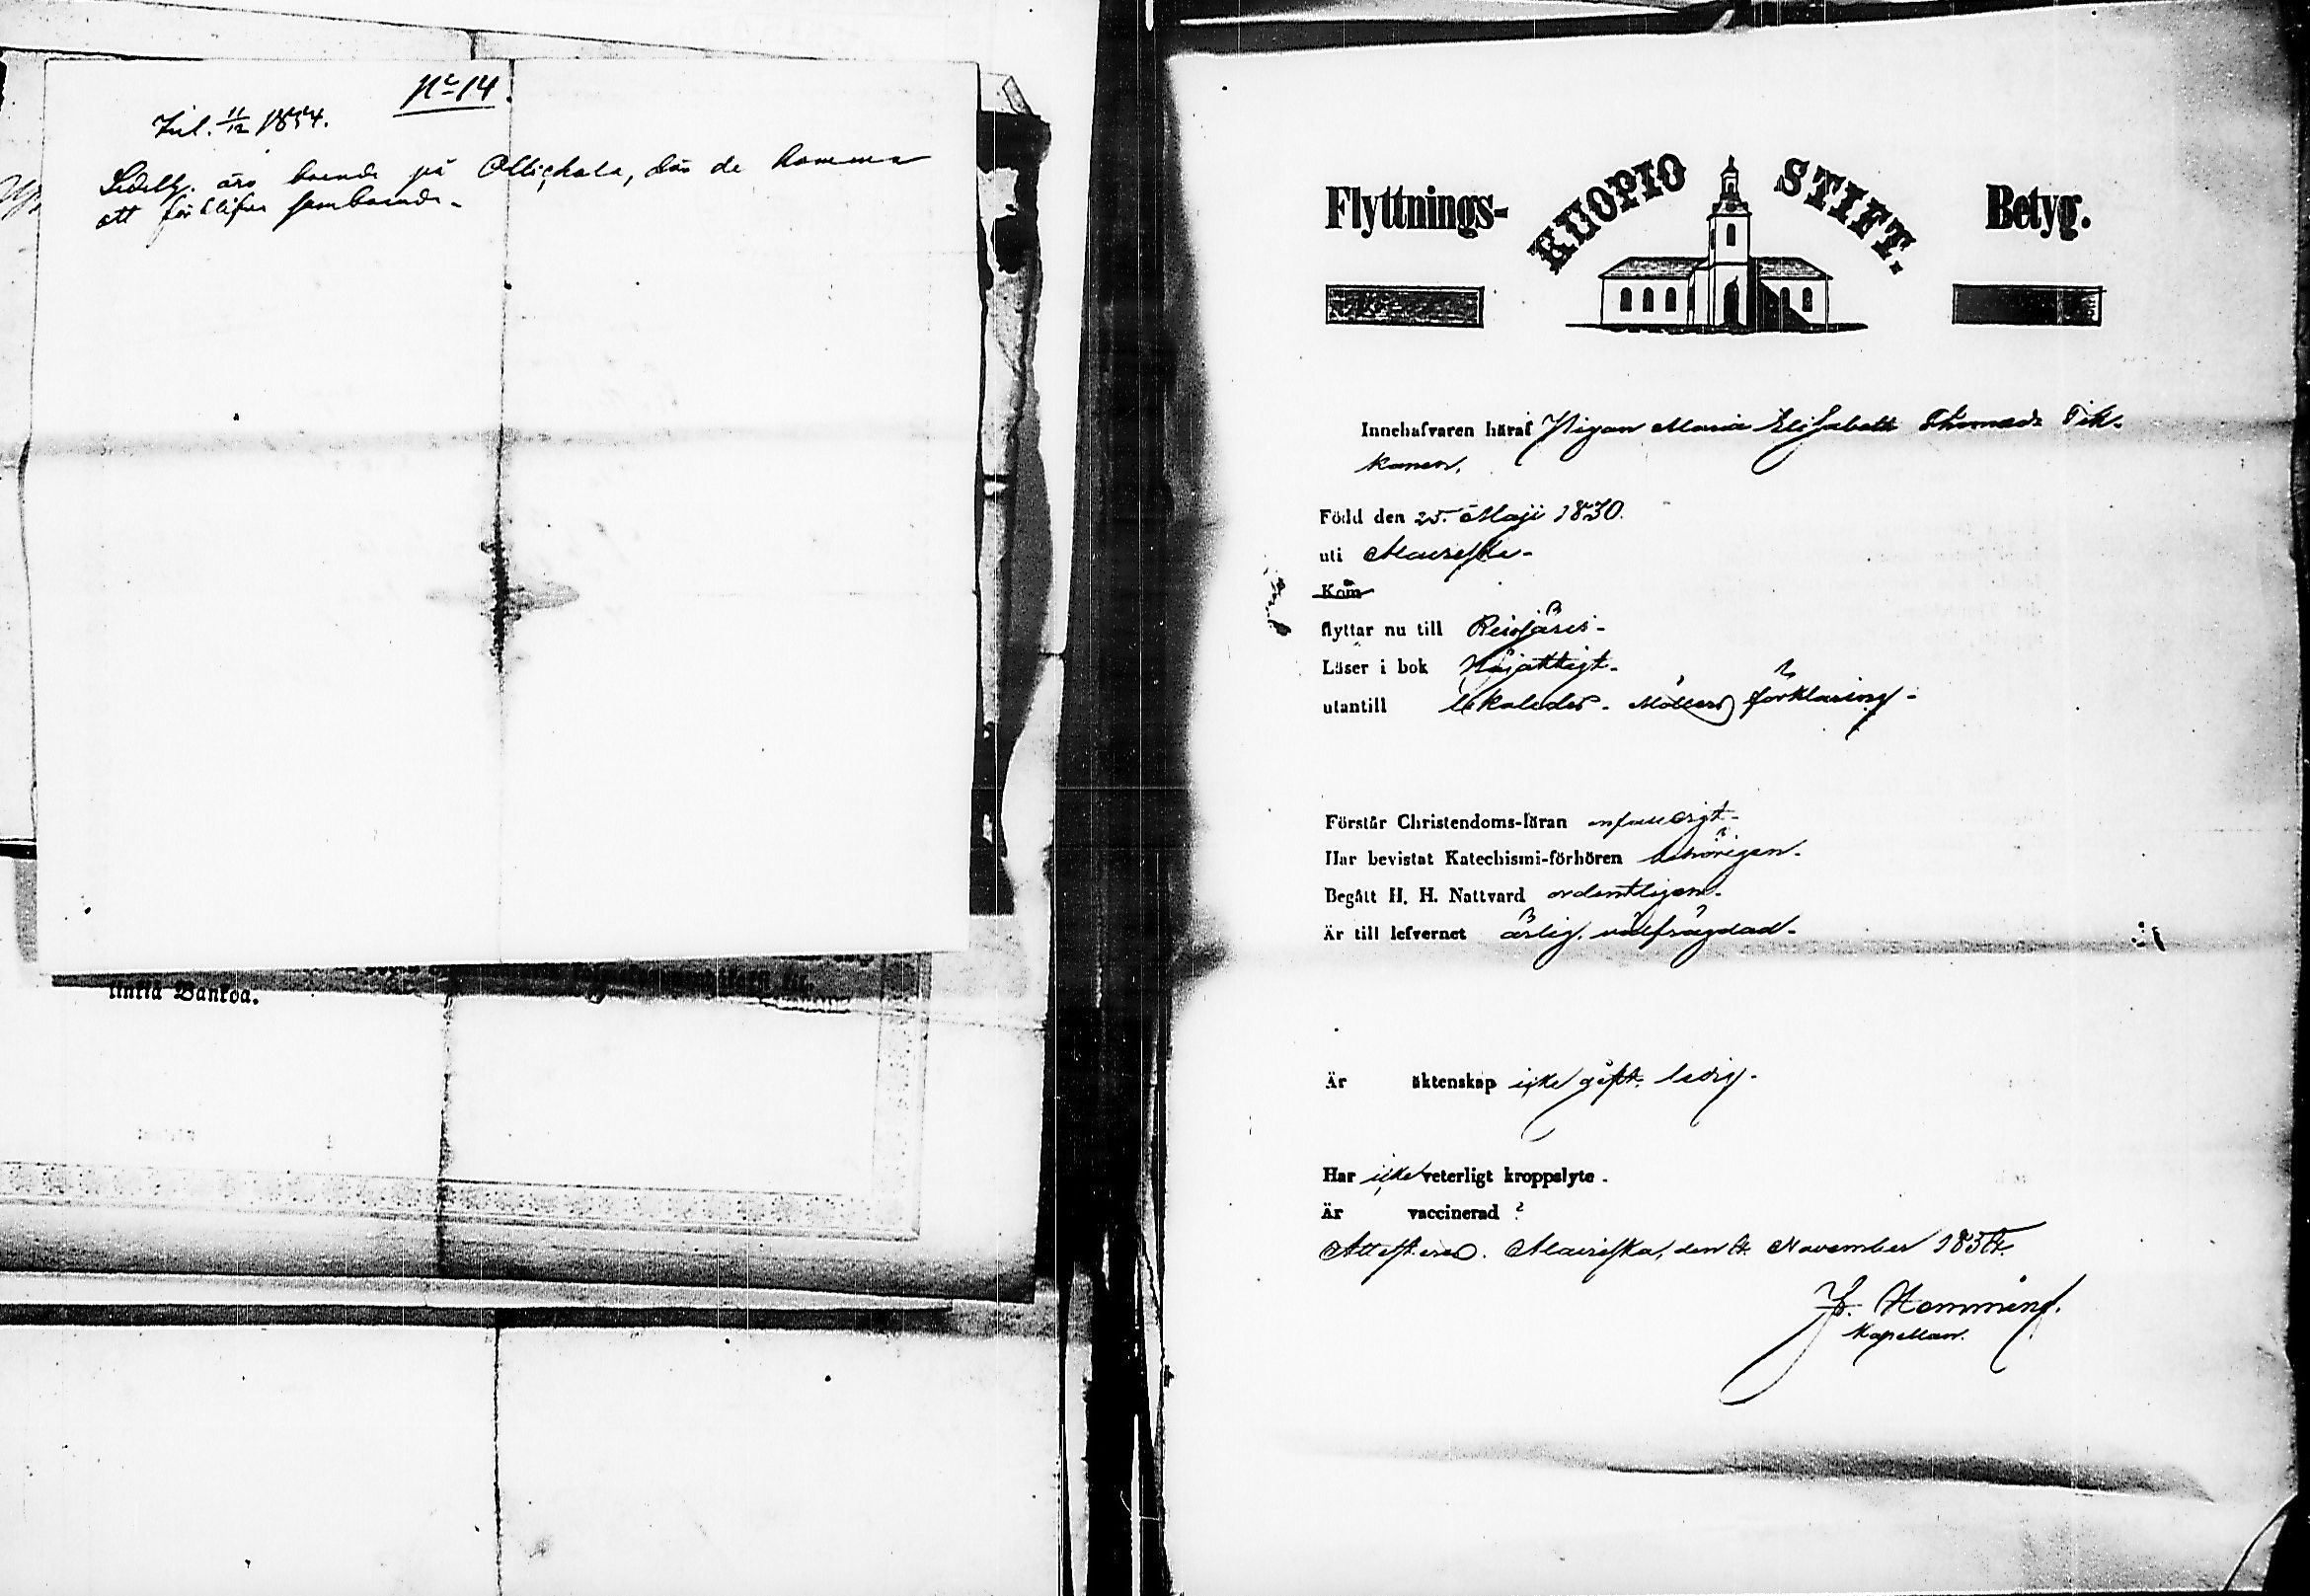 No 14
Inl. 11/12 1854.
äro boende på Ollickala, där de komma
att förblifva
linna Pankoa.
Flyttnings- KUOPIO STIFT. Betyg.
Innehafvaren häraf Pigan Maria Elisabeth Thomasdr Tik-
kanen.
Född den 25. Maji 1830.
uti
Kom
flyttar nu till Reisjärvi-
Läser i bok Nöjaktigt-
utantill likaledes. Möllers förklaring-
Förstår Christendoms-läran enfaldigt-
Har bevistat Katechismi-förhören behörigen-
Begått H. H. Nattvard ordentligen-
Är till lefvernet ärlig. välfrägdad-
Är äktenskap icke gift. ledig-
Har icke veterligt kroppslyte.
Är vaccinerad?
Attesteras. den November 1854.
Hemming.
Kapellan.